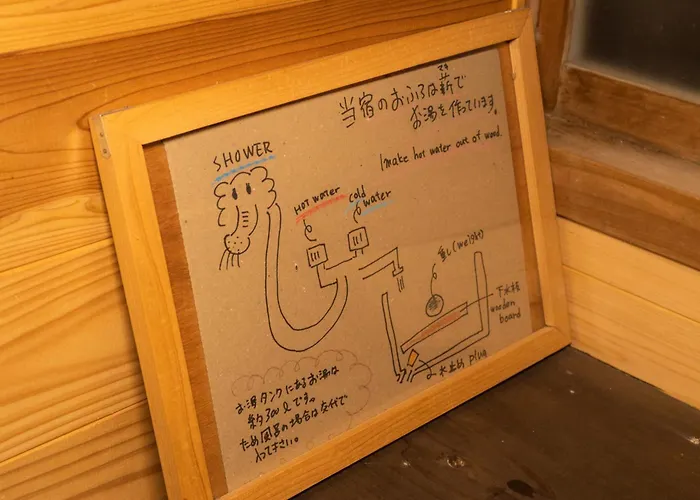 当宿のおふろは薪で
マキ
お湯を作っています。
I make hot water out of wood.
SHOWER
HOT water
cold
water
重し(weight)
下水栓
wooden
board
水止め plug
お湯タンクにあるお湯は
約300ℓです。
ため風呂の場合は交代で
入って下さい。